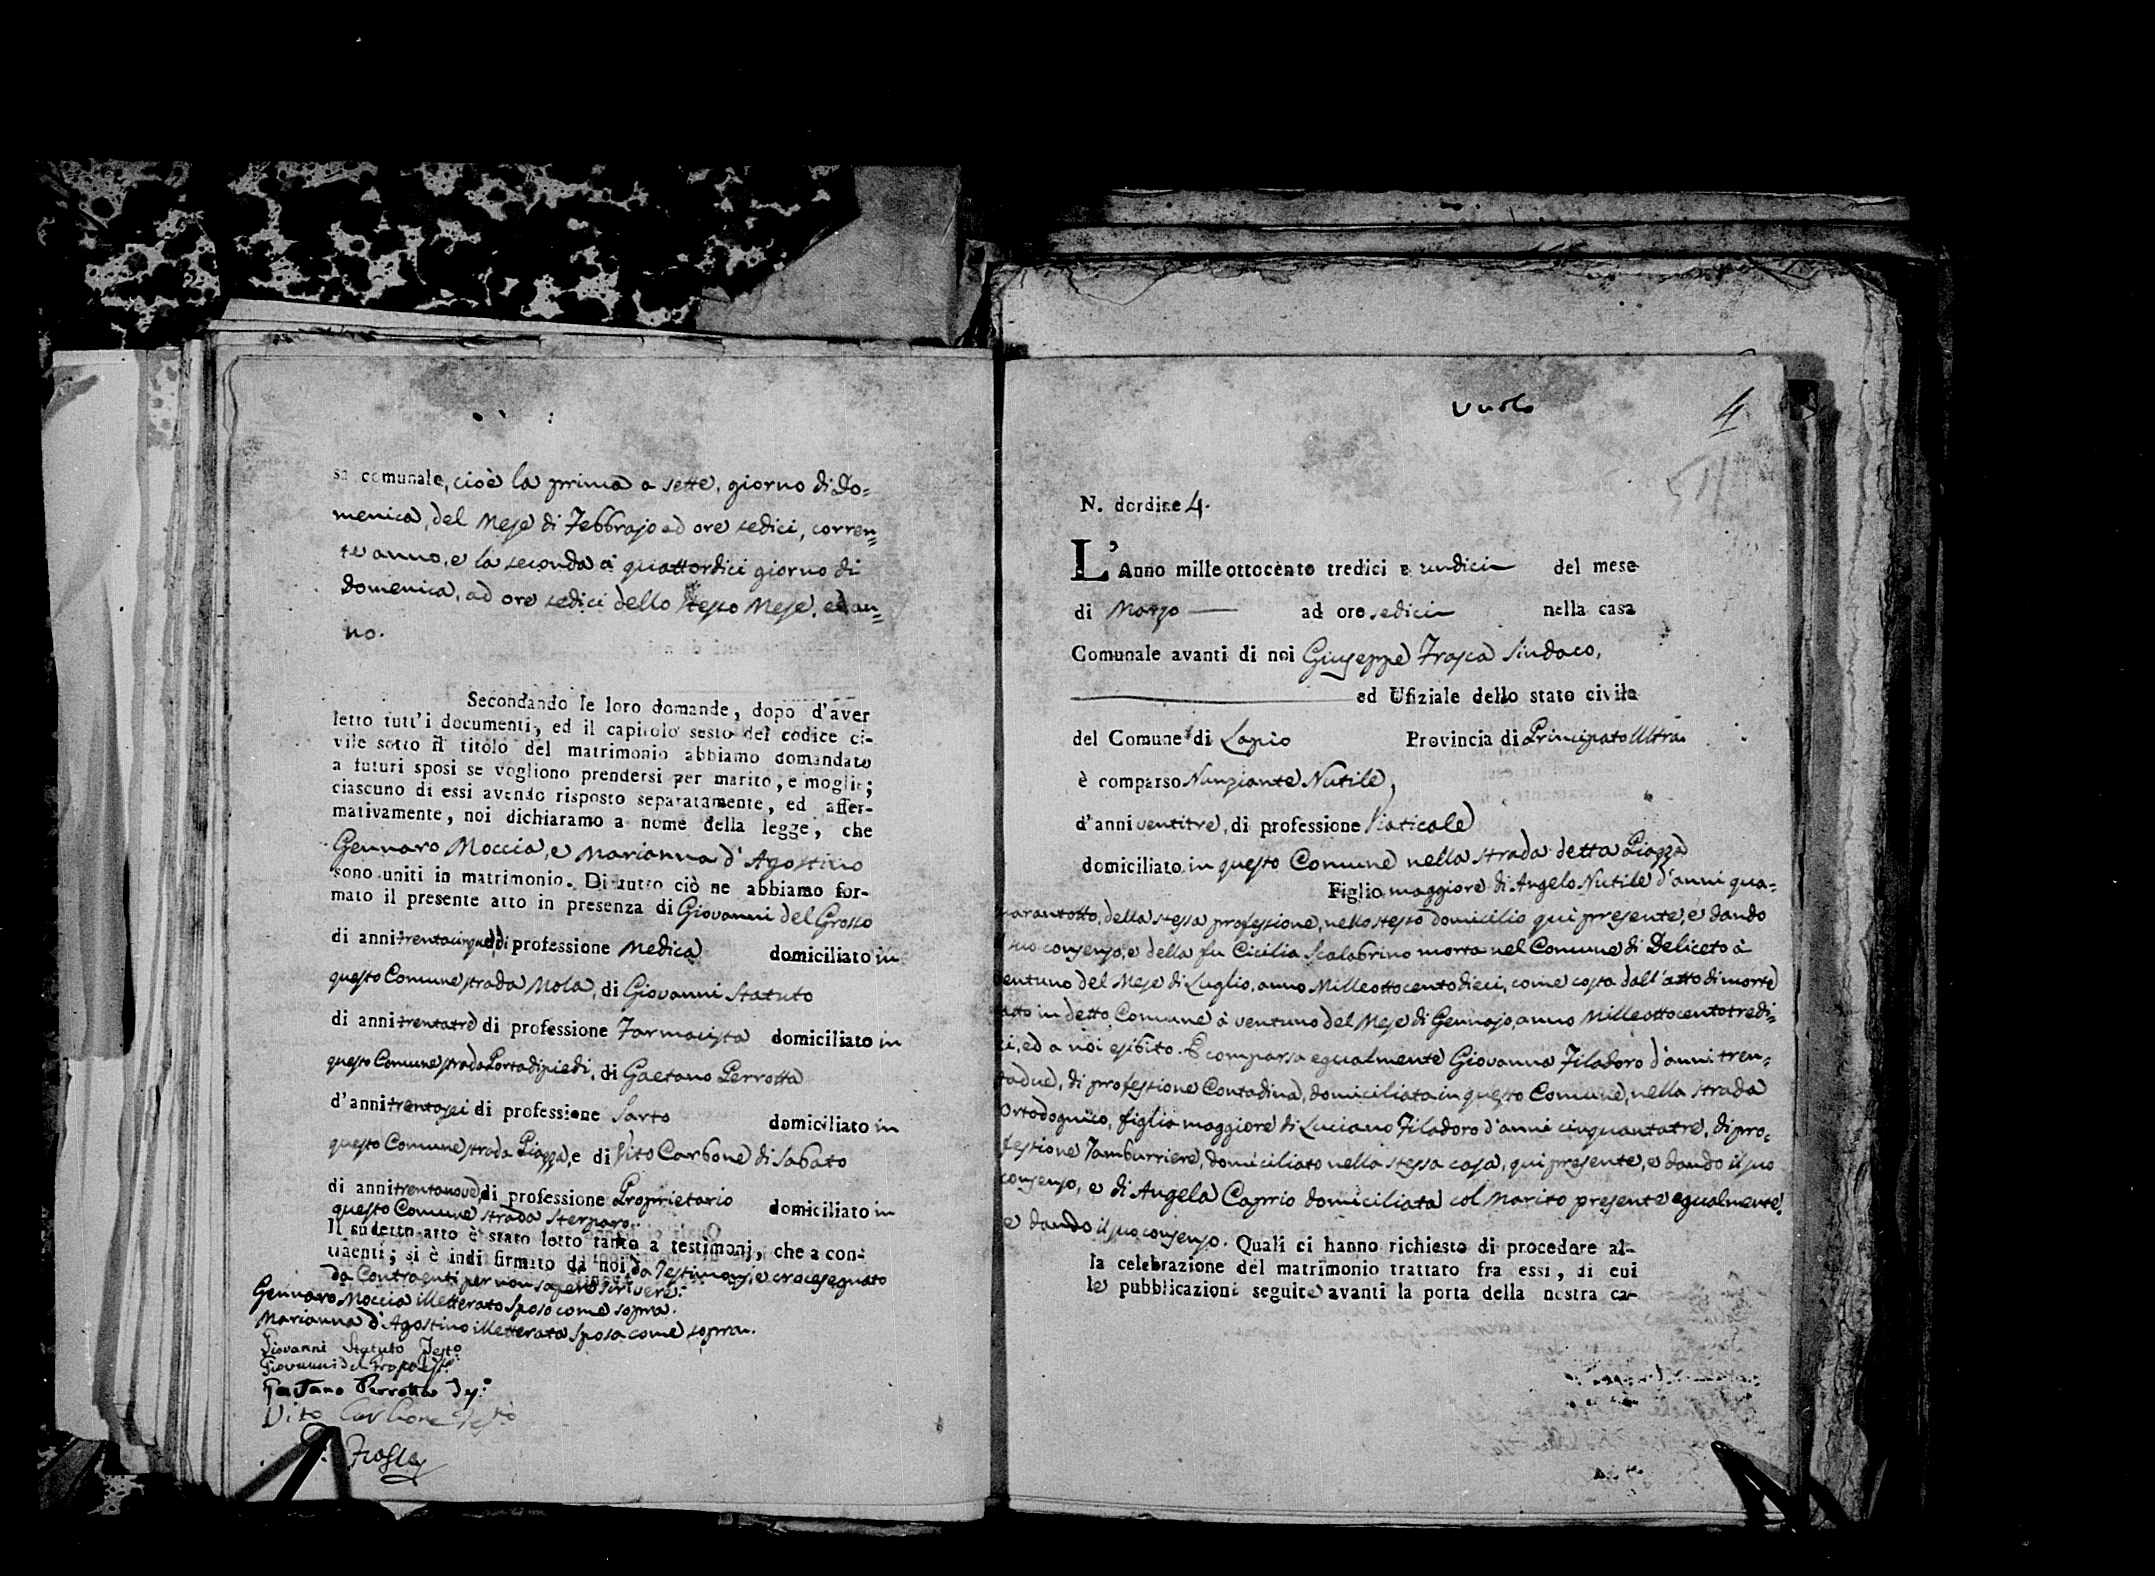 sa comunale, cioè la prima a sette, giorno di Do=
menica, del Mese di Febbrajo ad ore sedici, corren=
te anno, e la seconda à quattordici giorno di
Domenica, ad ore sedici dello stesso Mese, ed an=
no.
Secondando le loro domande, dopo d'aver
letto tutt'i documenti, ed il capitolo sesto del codice ci-
vile sotto il titolo del matrimonio abbiamo domandato
a futuri sposi se vogliono prendersi per marito, e moglie;
ciascuno di essi avendo risposto separatamente, ed affer-
mativamente, noi dichiaramo a nome della legge, che
Gennaro Moccia, e Marianna d'Agostino
sono uniti in matrimonio. Di tutto ciò ne abbiamo for-
mato il presente atto in presenza di Giovanni del Grosso
di anni trentacinque, di professione Medica domiciliato in
questo Comune strada Mola, di Giovanni Statuto
di anni trentatrè di professione Farmacista domiciliato in
questo Comune strada Portadipiedi, di Gaetano Perrotta
d'anni trentasei di professione Sarto domiciliato in
questo Comune strada Piazza, e di Vito Carbone di Sabato
di anni trentanove, di professione Proprietario domiciliato in
questo Comune strada Sterparo.
Il sudetto atto è stato letto tanto a testimonj, che a con-
traenti; si è indi firmato da noi da Testimonj, e crocesegnato
da Contraenti per non sapere scrivere.
Gennaro Moccia illetterato Sposo come sopra.
Marianna d'Agostino illetterata Sposa come sopra.
Giovanni Statuto Testo
Giovanni del Grosso
Gaetano Perrotta Tes.º
Vito Carbone Testo
Frasca
4
N. dordine 4.
L'Anno mille ottocento tredici a undici del mese
di Marzo ad ore sedici nella casa
Comunale avanti di noi Giuseppe Frasca Sindaco,
ed Ufiziale dello stato civile
del Comune di Lapio Provincia di Principato Ultra.
è comparso Nunziante Nutile,
d'anni ventitre, di professione Viaticale
domiciliato in questo Comune nella strada detta Piazza
Figlio maggiore di Angelo Nutile d'anni qua=
rarantotto, della stessa professione, nello stesso domicilio qui presente, e dando
il suo consenso, e della fu Cicilia Scalabrino morta nel Comune di Deliceto à
ventuno del Mese di Luglio, anno Milleottocentodieci, come costa dall'atto di morte
dato in detto Comune à ventuno del Mese di Gennajo anno Milleottocentotredi=
ci, ed a noi esibito. È comparsa egualmente Giovanna Filadoro d'anni tren=
tadue, di professione Contadina, domiciliata in questo Comune, nella strada
Ortodognico, figlia maggiore di Luciano Filadoro d'anni cinquantatre, di pro=
fessione Tamburriere, domiciliato nella stessa casa, qui presente, e dando il suo
consenso, e di Angela Caprio domiciliata col Marito presente egualmente,
e dando il suo consenso. Quali ci hanno richiesto di procedere al-
la celebrazione del matrimonio trattato fra essi, di cui
le pubblicazioni seguite avanti la porta della nostra ca-